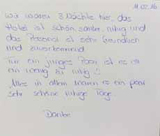 11.05.16
Wir waren 3 Nächte hier, das
Hotel ist schön sauber ruhig und
das Personal ist sehr freundlich
und zuvorkommend
Für ein junges Paar ist es
ein wenig zu ruhig.
Alles in allem waren es ein paar
sehr schöne ruhige Tage
Danke